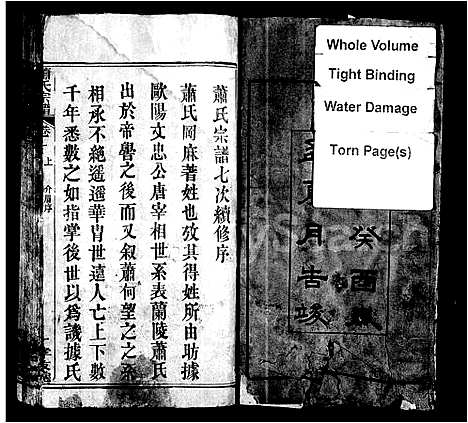 Whole Volume
Tight Binding
Water Damage
Torn Page(s)
癸酉
月告竣
蕭氏宗譜七次續修序
蕭氏岡麻著姓也攷其得姓所由昉據
歐陽文忠公唐宰相世系表蘭陵蕭氏
出於帝嚳之後而又叙蕭何望之之系
相承不絶遥遥華胄世遠人亡上下數
千年悉數之如指掌後世以爲譏據氏
蕭氏宗譜 卷 上